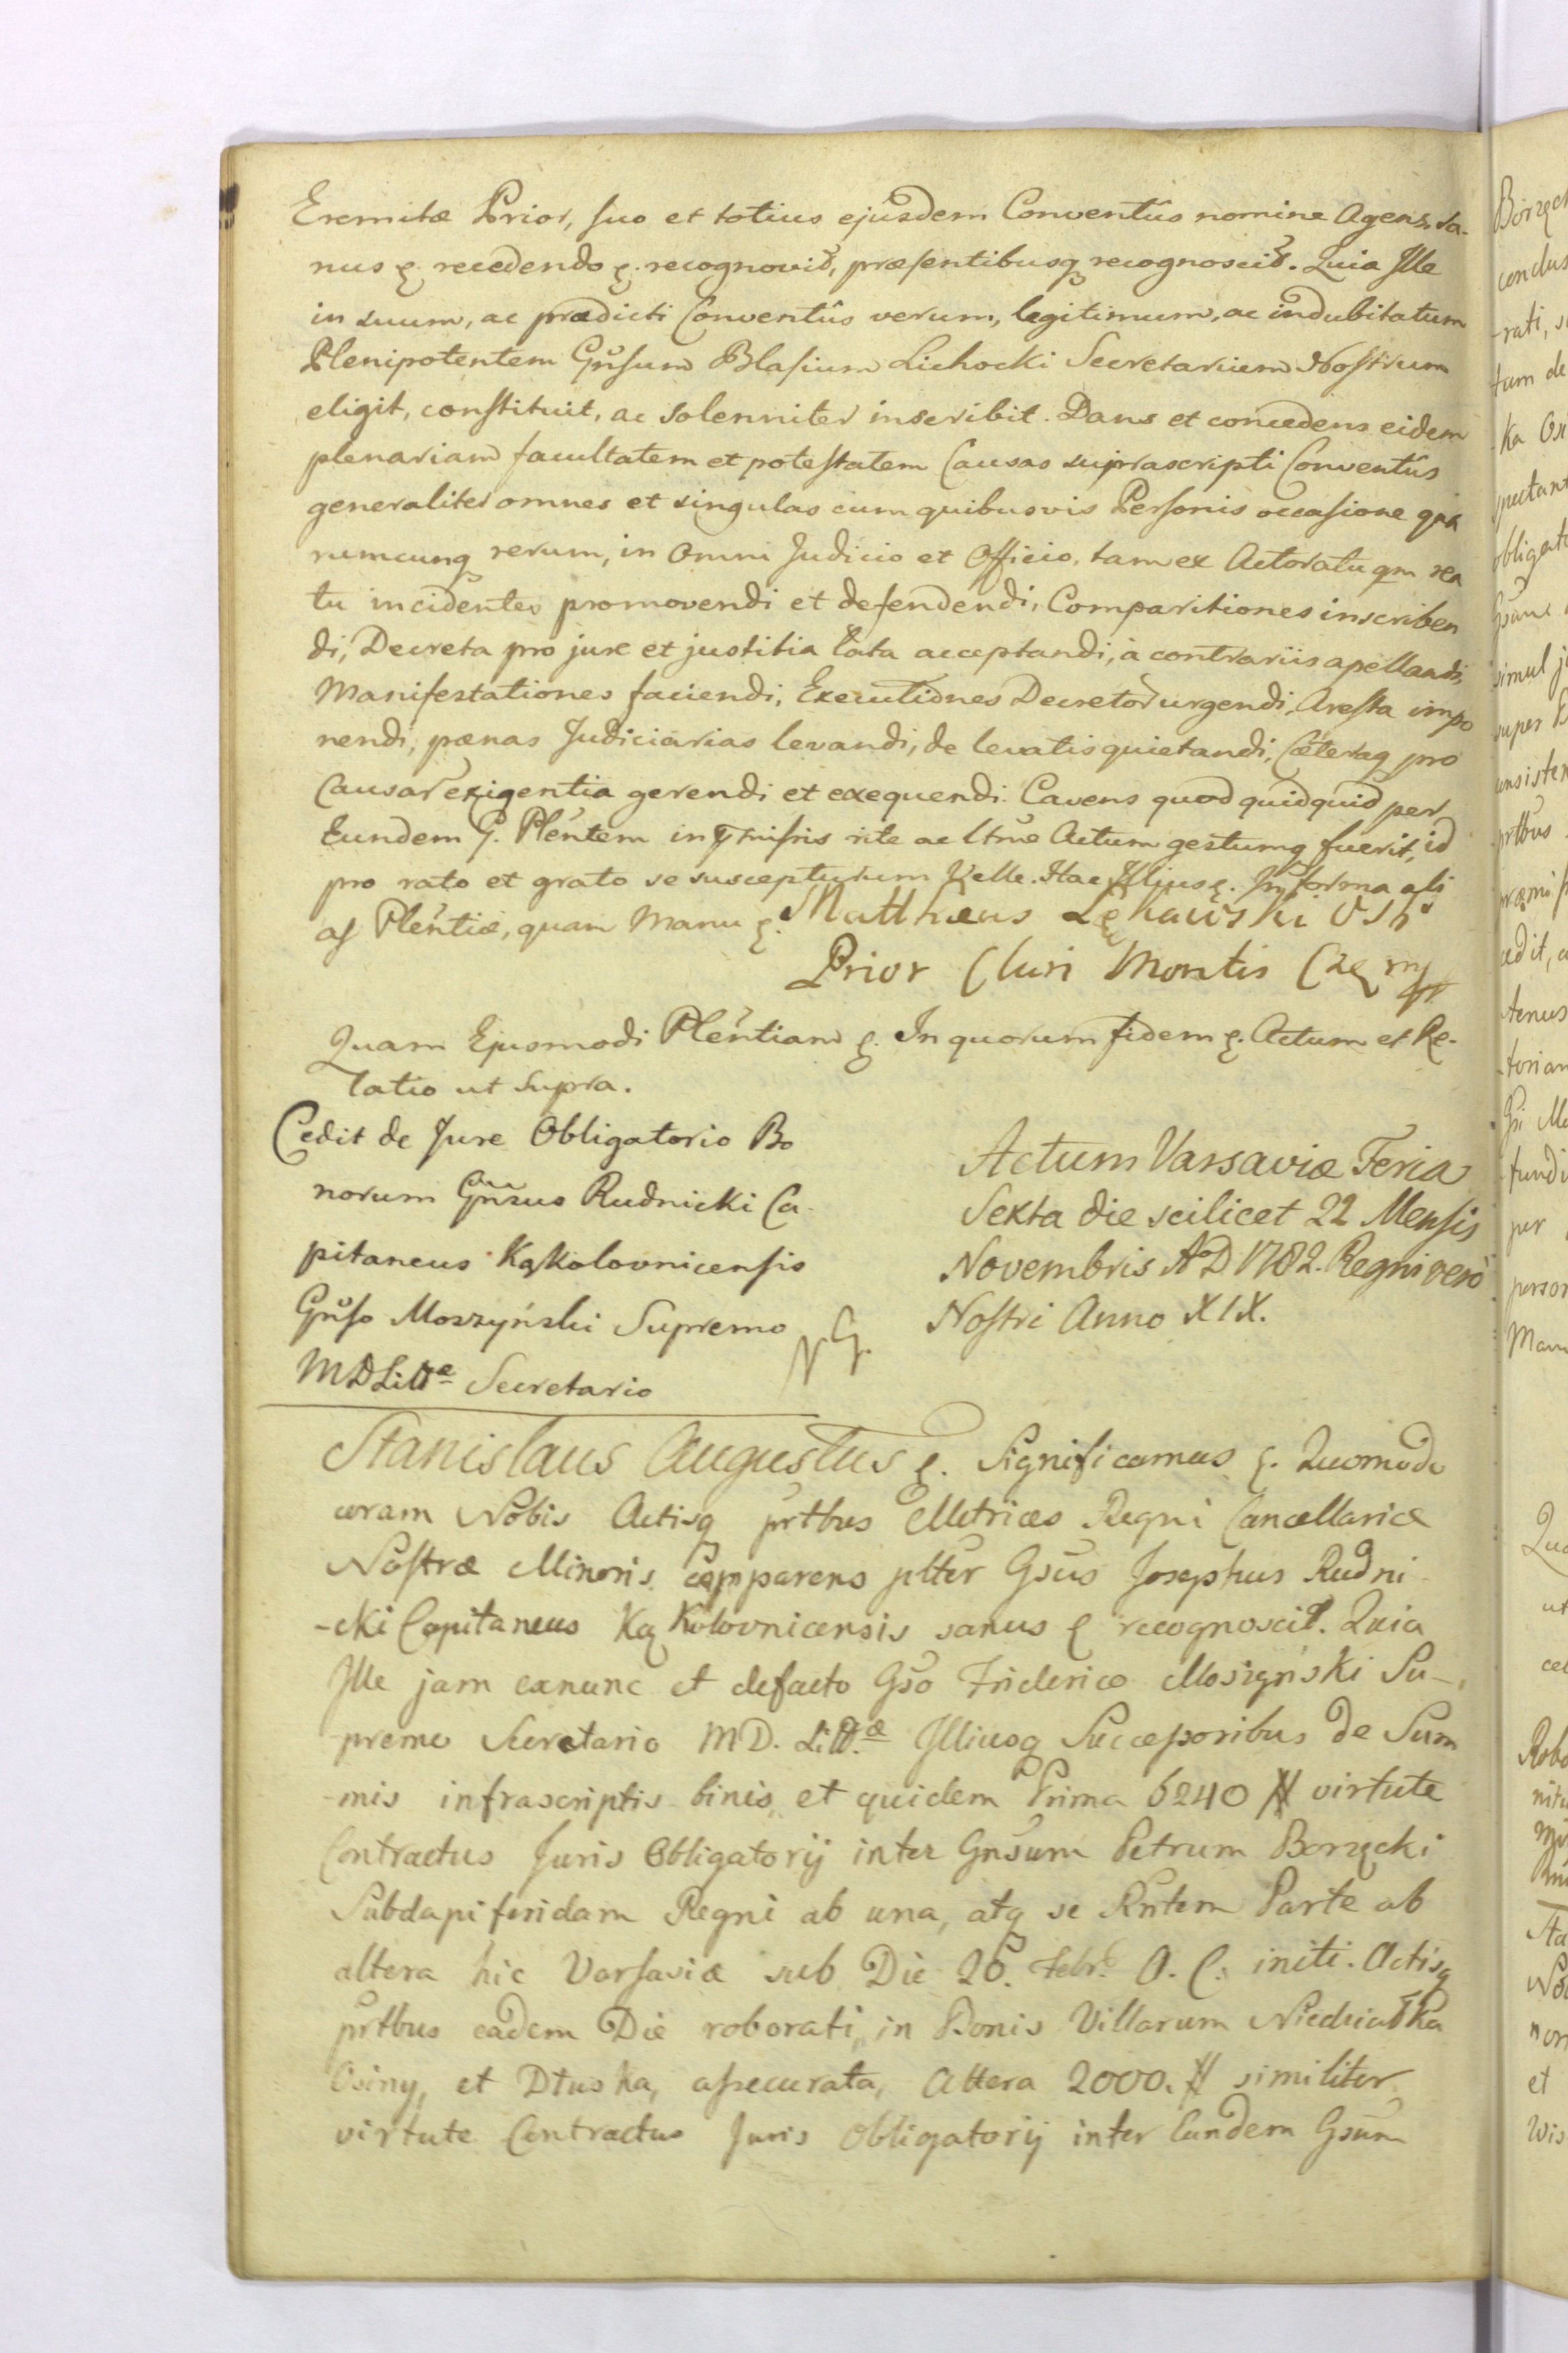 Eremitæ Prior, suo et totius ejusdem Conventûs nomine Agens, sa-
nus etc. recedendo etc. recognovit, præsentibusq recognoscit. Quia Ille
in suum, ac prædicti Conventûs verum, legitimum, ac indubitatum
Plenipotentem Gnsum Blasium Lichocki Secretarium Nostrum
eligit, constituit, ac solenniter inscribit. Dans et concedens eidem
plenariam facultatem et potestatem Causas suprascripti Conventûs
generaliter omnes et singulas cum quibusvis Personis occasione qua
rumcunq rerum, in omni Judicio et Officio, tam ex Actoratu qm rea
tu incidentes promovendi et defendendi, Comparitiones inscriben
di, Decreta pro jure et justitia lata acceptandi, à contrariis apellandi,
Manifestationes faciendi, Executiones Decretor urgendi, Aresta impo
nendi, pænas Judiciarias levandi, de levatis quietandi, Cæteraq pro
Causar exigentia gerendi et exequendi. Cavens quod quidquid per
Eundem G. Plentem in præmisis rite ac ltme Actum gestumq fuerit, id
pro rato et grato se suscepturum Velle. Hac Illius etc. In forma ali
as Plentiæ, quam Manu etc. Matthæus Lękawski
Prior Clari Montis Częn mp
Quam Ejusmodi Plentiam etc. In quorum fidem etc. Actum et Re-
latio ut supra.
Cedit de Jure Obligatorio Bo
norum Gnsus Rudnicki Ca-
pitaneus Kąkolovnicensis
Gnso Moszyński Supremo
MDLittæ Secretario
NG.
Actum Varsaviæ Feria
Sexta die scilicet 22 Mensis
Novembris AD 1782. Regni verò
Nostri Anno XIX.
Stanislaus Augustus etc. Significamus etc. Quomodo
coram Nobis Actisq prtbus Metrices Regni Cancellariæ
Nostræ Minoris comparens plter Gsus Josephus Rudni
-cki Capitaneus Kąkolovnicensis sanus etc recognoscit. Quia
Ille jam exnunc et defacto Gso Friderico Moszyński Su-
premo Secretario MD. Litt.æ Illiusq Successoribus de Sum
-mis infrascriptis binis, et quidem Prima 6240 # virtute
Contractus Juris Obligatorij inter Gnsum Petrum Borzęcki
Subdapiferidam Regni ab una, atq se Rntem Parte ab
altera hic Varsaviæ sub Die 26. Febr. A. C. initi. Actisq
prtbus eadem Die roborati, in Bonis Villarum Niedrzałka
Osiny, et Dłuska, assecurata, Altera 2000. # similiter
virtute Contractus Juris Obligatorij inter Eundem Gsum